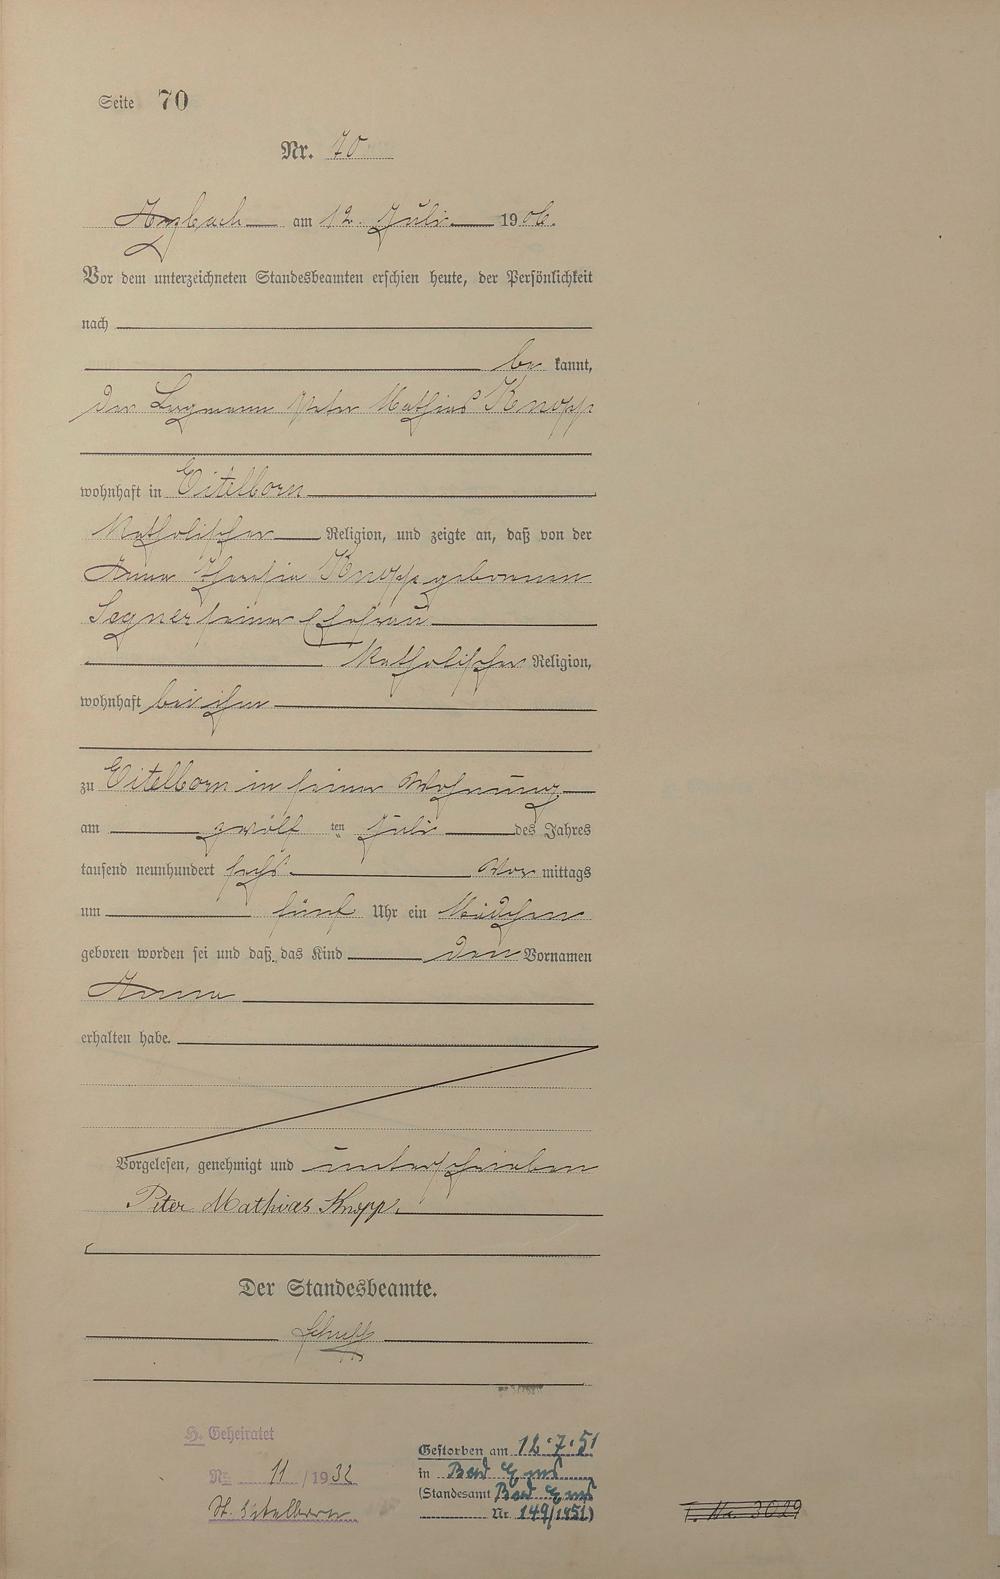 Seite 70
Nr. 70
Arzbach am 12. Juli 1906.
Vor dem unterzeichneten Standesbeamten erschien heute, der Persönlichkeit
nach
be kannt,
der Bergmann Peter Mathias Knopp
wohnhaft in Eitelborn
katholischer Religion, und zeigte an, daß von der
Anna Theresia Knopp geborenen
Segner seiner Ehefrau
katholischer Religion,
wohnhaft bei ihm
zu Eitelborn in seiner Wohnung
am zwölf ten Juli des Jahres
tausend neunhundert sechs Vor mittags
um fünf Uhr ein Mädchen
geboren worden sei und daß das Kind den Vornamen
Anna
erhalten habe.
Vorgelesen, genehmigt und unterschrieben
Peter Mathias Knopp.
Der Standesbeamte.
H. Geheiratet
Nr. 11 / 1932
St. Eitelborn
Gestorben am 12.7.51
in Bad Ems
(Standesamt Bad Ems
Nr. 149/1951)